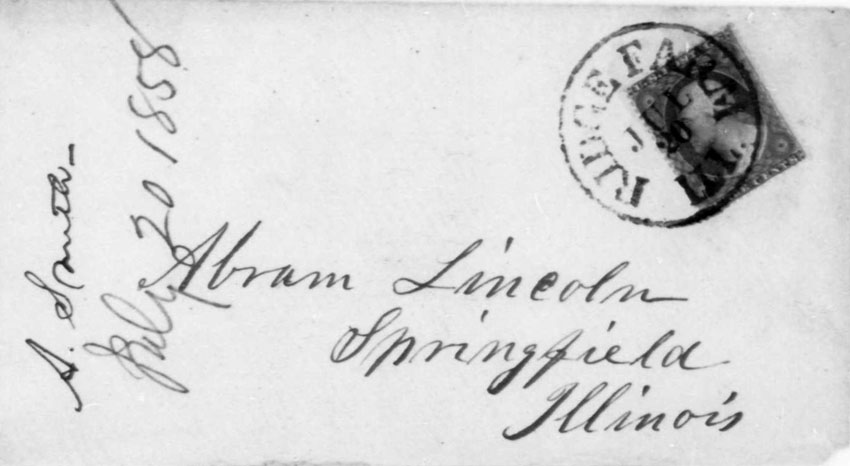 RIDGE FARM
JUL
20
ILL.
Abram Lincoln
Springfield
Illinois
A. Smith
July 20 1858